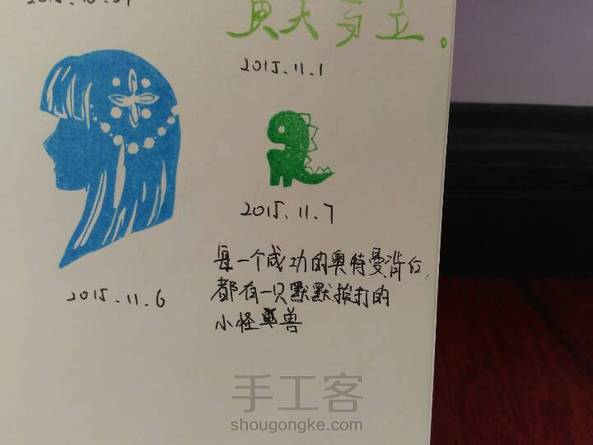 2015.11.1
2015.11.7
2015.11.6
每一个成功的奥特曼背后,
都有一只默默挨打的
小怪兽
手工客
shougongke.com